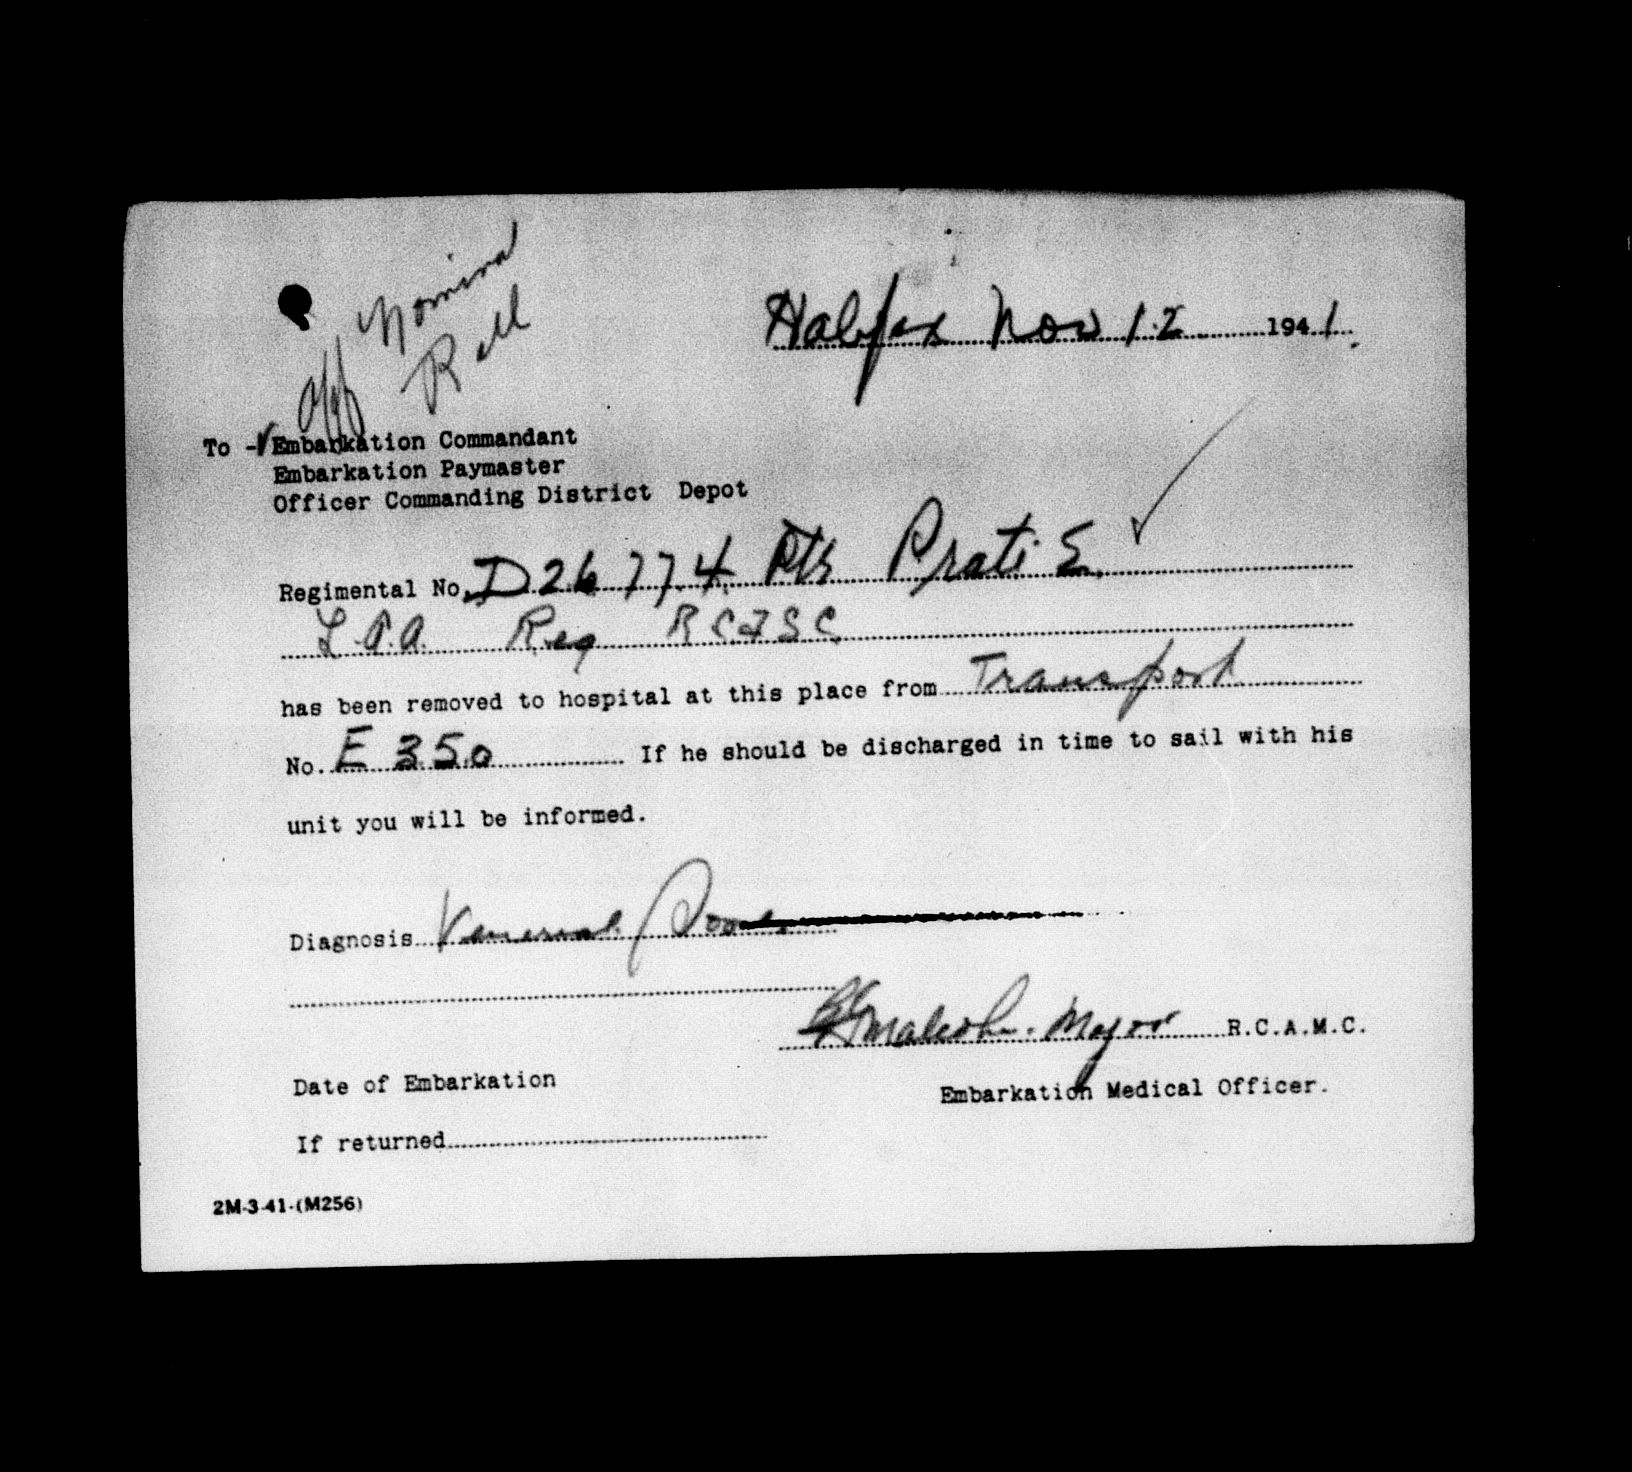 Off Nominal
Roll
Halifax Nov 12 1941.
To - Embarkation Commandant
Embarkation Paymaster
Officer Commanding District Depot
Regimental No. D26774 Pte Prati E.
Reg
has been removed to hospital at this place from Transport
No. E 350 If he should be discharged in time to sail with his
unit you will be informed.
Diagnosis Venereal
Malcolm. Major R.C.A.M.C.
Embarkation Medical Officer.
Date of Embarkation
If returned
2M-3-41-(M256)